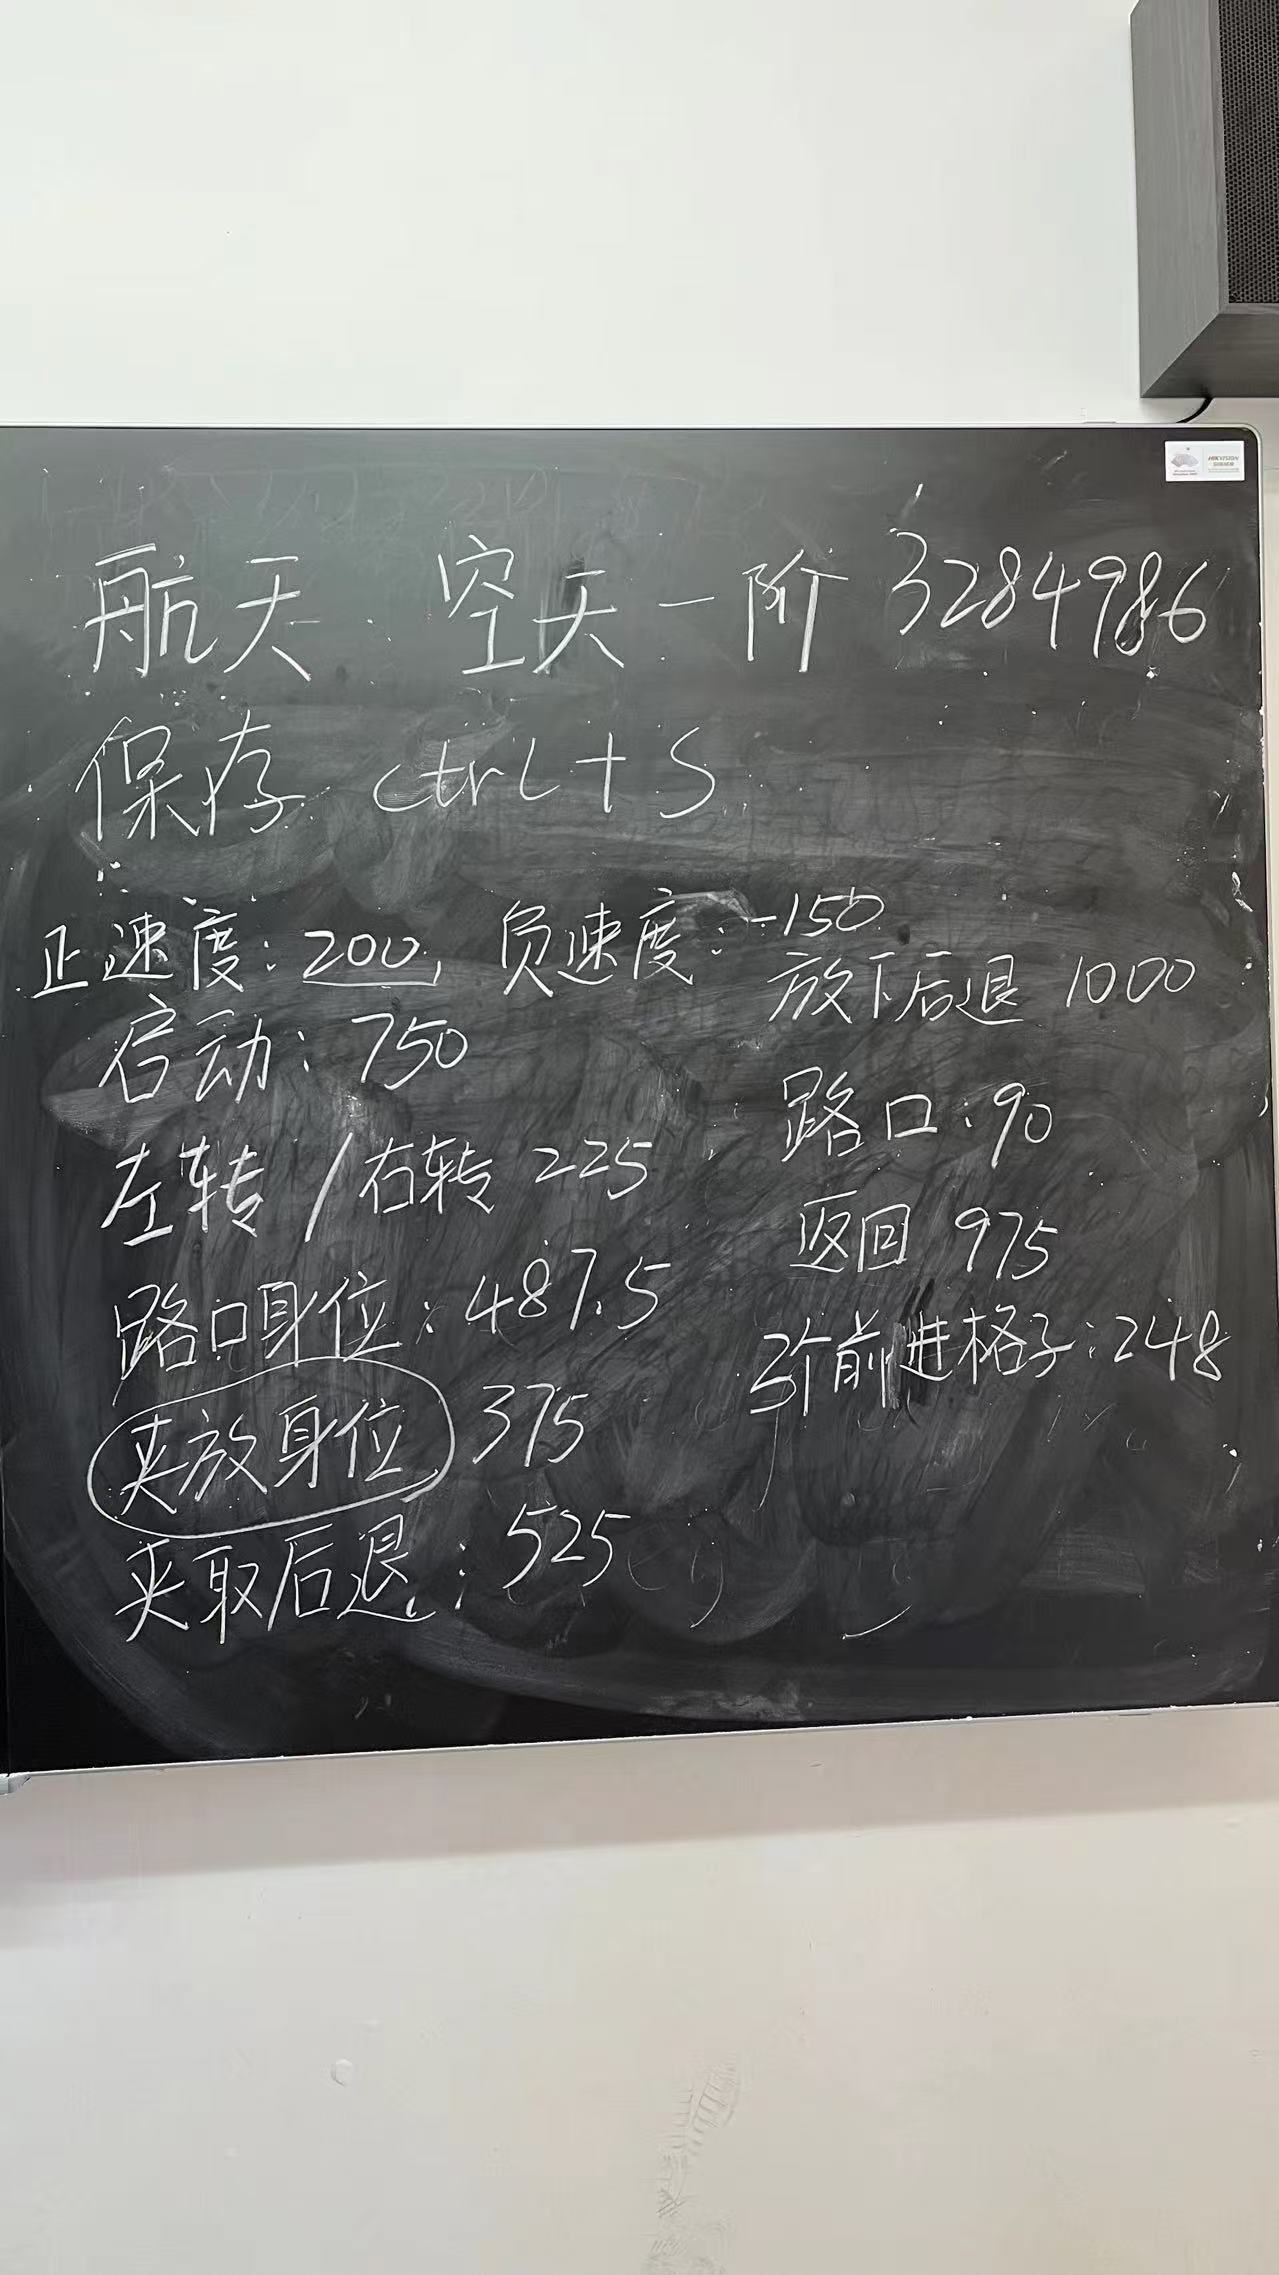 航天 空天一阶 3284986
保存 ctrl+S
正速度:200, 负速度:-150
启动:750
左转/右转 225
路口身位:487.5
夹放身位 375
夹取后退:525
放下后退 1000
路口:90
返回 975
前进格子:248
HIKVISION